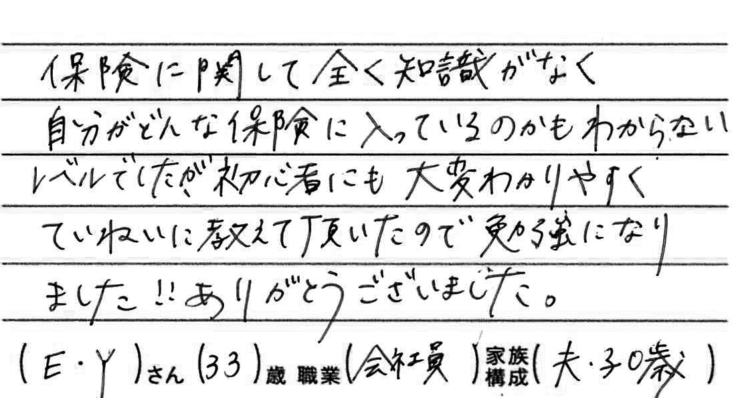 保険に関して全く知識がなく
自分がどんな保険に入っているのかもわからない
レベルでしたが、初心者にも大変わかりやすく
ていねいに教えて頂いたので勉強になり
ました!!ありがとうございました。
(E・Y)さん(33)歳 職業(会社員)家族構成(夫・子0歳)